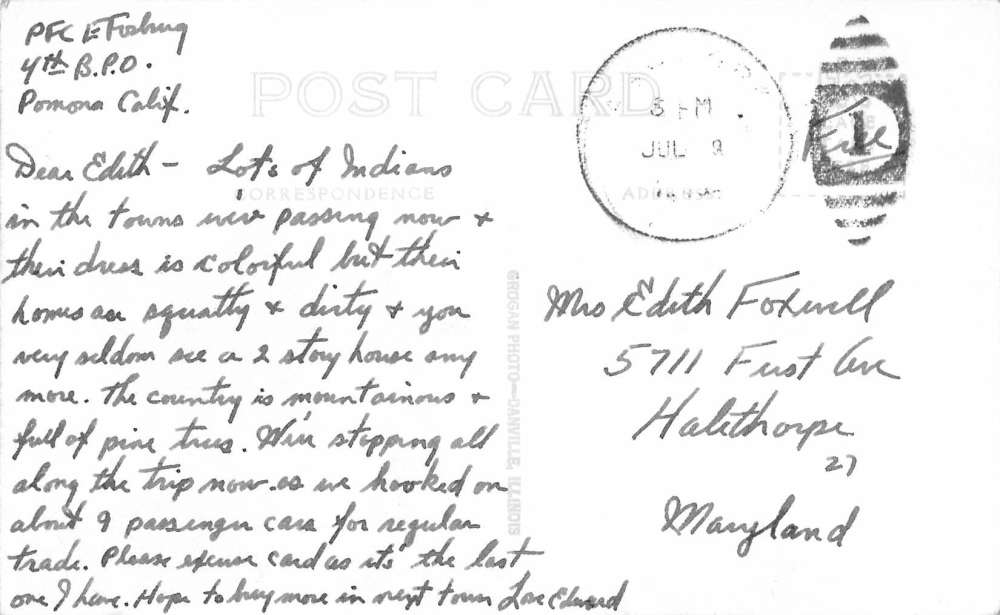 PFC E Fosburg
4th B.P.O.
Pomona Calif.
POST CARD
5 PM
JUL 9
1
Free
Dear Edith - Lot's of Indians
CORRESPONDENCE
ADDRESS
in the towns we're passing now &
their dress is colorful but their
homes are squatty & dirty & you
very seldom see a 2 story house any
more. The country is mountainous &
full of pine trees. We're stopping all
along the trip now as we hooked on
about 9 passenger cars for regular
trade. Please excuse card as its' the last
one I have. Hope to buy more in next town Love Edward
GROGAN PHOTO—DANVILLE, ILLINOIS
Mrs Edith Foxwell
5711 First Ave
Halethorpe
27
Maryland